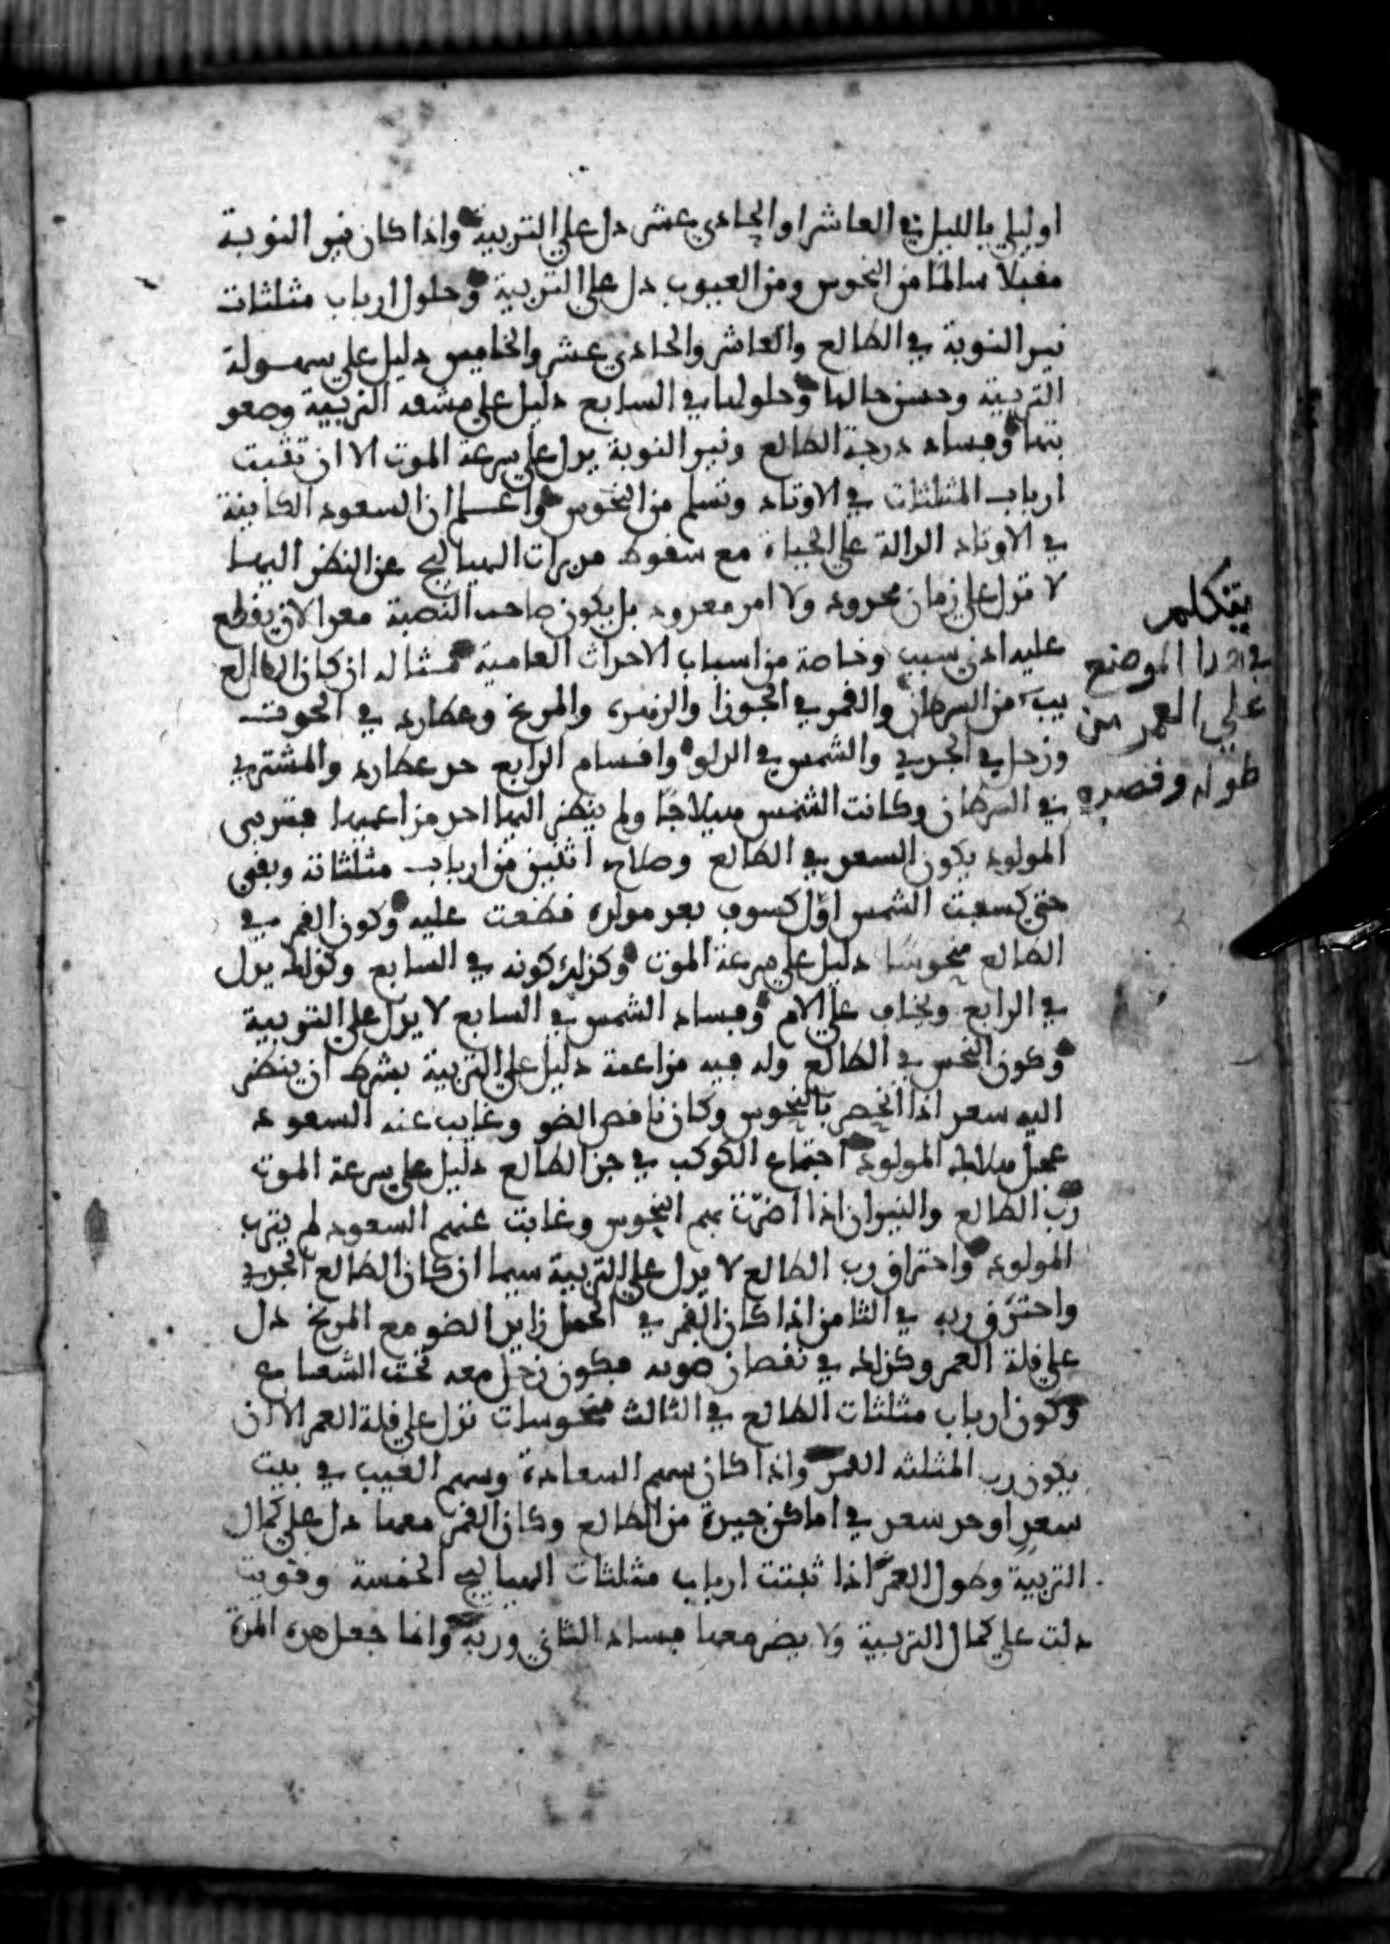 او ليلي بالليل في العاشر او الحادي عشر دل على التربية واذا كان نير النوبة
مقبلا سالما من النحوس ومن العيوب دل على التربية وحلول ارباب مثلثات
نير النوبة في الطالع والعاشر والحادي عشر والخامس دليل على سهولة
التربية وحسن حالها وحلولها في السابع دليل على مشقة التربية وصعو
بتها وفساد درجة الطالع ونير النوبة يدل على سرعة الموت الا ان تثبت
ارباب المثلثات في الاوتاد وتسلم من النحوس واعلم ان السعود الكاينة
في الاوتاد الدالة على الحياة مع سقوط مدبرات الهياليج عن النظر اليها
لا تدل على زمان محدود ولا امر معدود بل يكون صاحب النصبة معدا لان يقطع
عليه ادنى سبب وخاصة من اسباب الاحداث العامية مثاله ان كان الطالع
يب من السرطان والقمر في الجوزا والزهرة والمريخ وعطارد في الحوت
وزحل في الجدي والشمس في الدلو واقسام الرابع حد عطارد والمشتري
في السرطان وكانت الشمس هيلاجا ولم ينظر اليها احد من اعيها فتربى
المولود بكون السعد في الطالع وصلاح اثنين من ارباب مثلثاته وبقي
حتى كسفت الشمس اول كسوف بعد مولده فقطعت عليه وكون القمر في
الطالع منحوسا دليل على سرعة الموت وكذلك كونه في السابع وكذلك يدل
في الرابع ويخاف على الام وفساد الشمس في السابع لا يدل على التربية
وكون النحس في الطالع وله فيه مزاعمة دليل على التربية بشرط ان ينظر
اليه سعد اذا انحصر بالنحوس وكان ناقص الضو وغايب عنه السعود
عجل هلاك المولود اجتماع الكوكب في جز الطالع دليل على سرعة الموت
رب الطالع والنيران اذا اضرت بهم النحوس وغابت عنهم السعود لم يترب
المولود واحتراق رب الطالع لا يدل على التربية سيما ان كان الطالع الجدي
واحترق ربه في الثامن اذا كان القمر في الحمل زايد الضو مع المريخ دل
على قلة العمر وكذلك في نقصان ضويه فيكون زحل معه تحت الشعاع
وكون ارباب مثلثات الطالع في الثالث منحوسات تدل على قلة العمر الا ان
يكون رب المثلثه القمر واذا كان سهم السعادة وسهم الغيب في بيت
سعد او حد سعد في اماكن جيدة من الطالع وكان القمر معها دل على كمال
التربية وطول العمر اذا ثبتت ارباب مثلثات الهياليج الخمسة وقويت
دلت على كمال التربية ولا يضر معها فساد الثاني وربه وانما جعل هذه المدة
يتكلم
في هذا الموضع
على العمر من
طوله وقصره